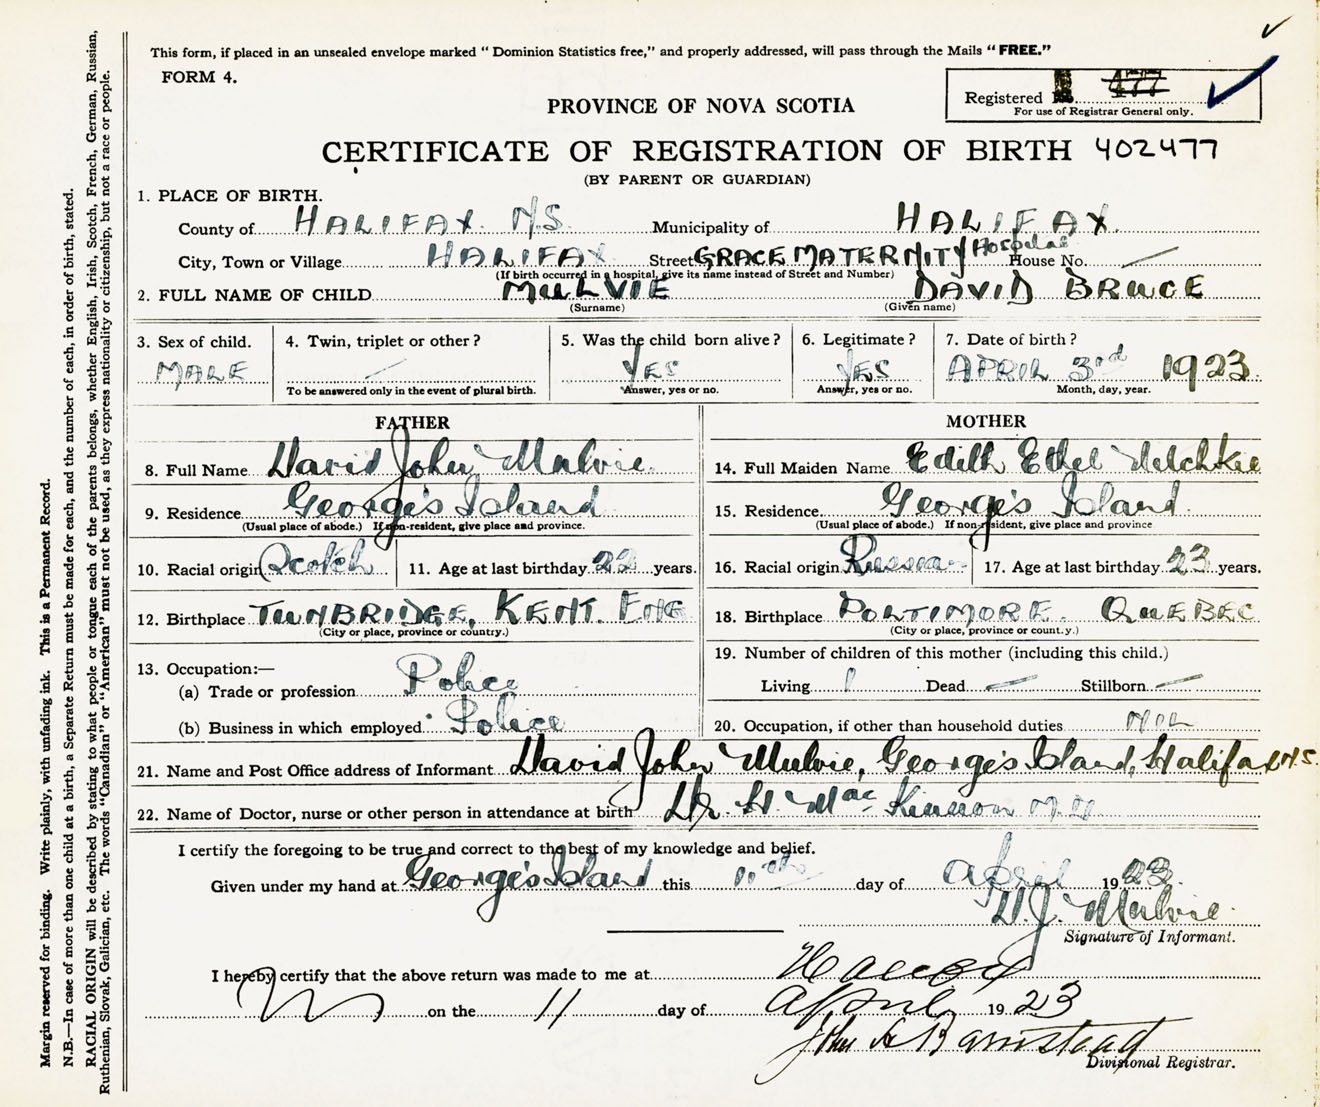 This form, if placed in an unsealed envelope marked “ Dominion Statistics free,” and properly addressed, will pass through the Mails “ FREE.”
FORM 4.
Registered 477
For use of Registrar General only.
PROVINCE OF NOVA SCOTIA
CERTIFICATE OF REGISTRATION OF BIRTH 402477
(BY PARENT OR GUARDIAN)
1. PLACE OF BIRTH.
County of HALIFAX. N.S. Municipality of HALIFAX.
City, Town or Village HALIFAX Street GRACE MATERNITY Hospital House No. —
(If birth occurred in a hospital, give its name instead of Street and Number)
2. FULL NAME OF CHILD MULVIE DAVID BRUCE
(Surname) (Given name)
3. Sex of child. 4. Twin, triplet or other? 5. Was the child born alive? 6. Legitimate? 7. Date of birth?
MALE — YES YES APRIL 3rd 1923.
To be answered only in the event of plural birth. Answer, yes or no. Answer, yes or no. Month, day, year.
FATHER
8. Full Name David John Mulvie.
9. Residence George's Island
(Usual place of abode.) If non-resident, give place and province.
10. Racial origin Scotch 11. Age at last birthday 22 years.
12. Birthplace TUNBRIDGE, KENT. ENG
(City or place, province or country.)
13. Occupation:—
(a) Trade or profession Police
(b) Business in which employed Police
MOTHER
14. Full Maiden Name Edith Ethel
15. Residence George's Island
(Usual place of abode.) If non-resident, give place and province
16. Racial origin Russian 17. Age at last birthday 23 years.
18. Birthplace PORTIMORE. QUEBEC
(City or place, province or country.)
19. Number of children of this mother (including this child.)
Living 1 Dead — Stillborn —
20. Occupation, if other than household duties NIL
21. Name and Post Office address of Informant David John Mulvie, George's Island, Halifax N.S.
22. Name of Doctor, nurse or other person in attendance at birth Dr. H. Mac M.D.
I certify the foregoing to be true and correct to the best of my knowledge and belief.
Given under my hand at George's Island this 11th day of April 1923.
D.J. Mulvie.
Signature of Informant.
I hereby certify that the above return was made to me at Halifax
on the 11 day of April 1923
John A Barnstead
Divisional Registrar.
Margin reserved for binding. Write plainly, with unfading ink. This is a Permanent Record.
N.B.—In case of more than one child at a birth, a Separate Return must be made for each, and the number of each, in order of birth, stated.
RACIAL ORIGIN will be described by stating to what people or tongue each of the parents belongs, whether English, Irish, Scotch, French, German, Russian,
Ruthenian, Slovak, Galician, etc. The words “Canadian” or “American” must not be used, as they express nationality or citizenship, but not a race or people.